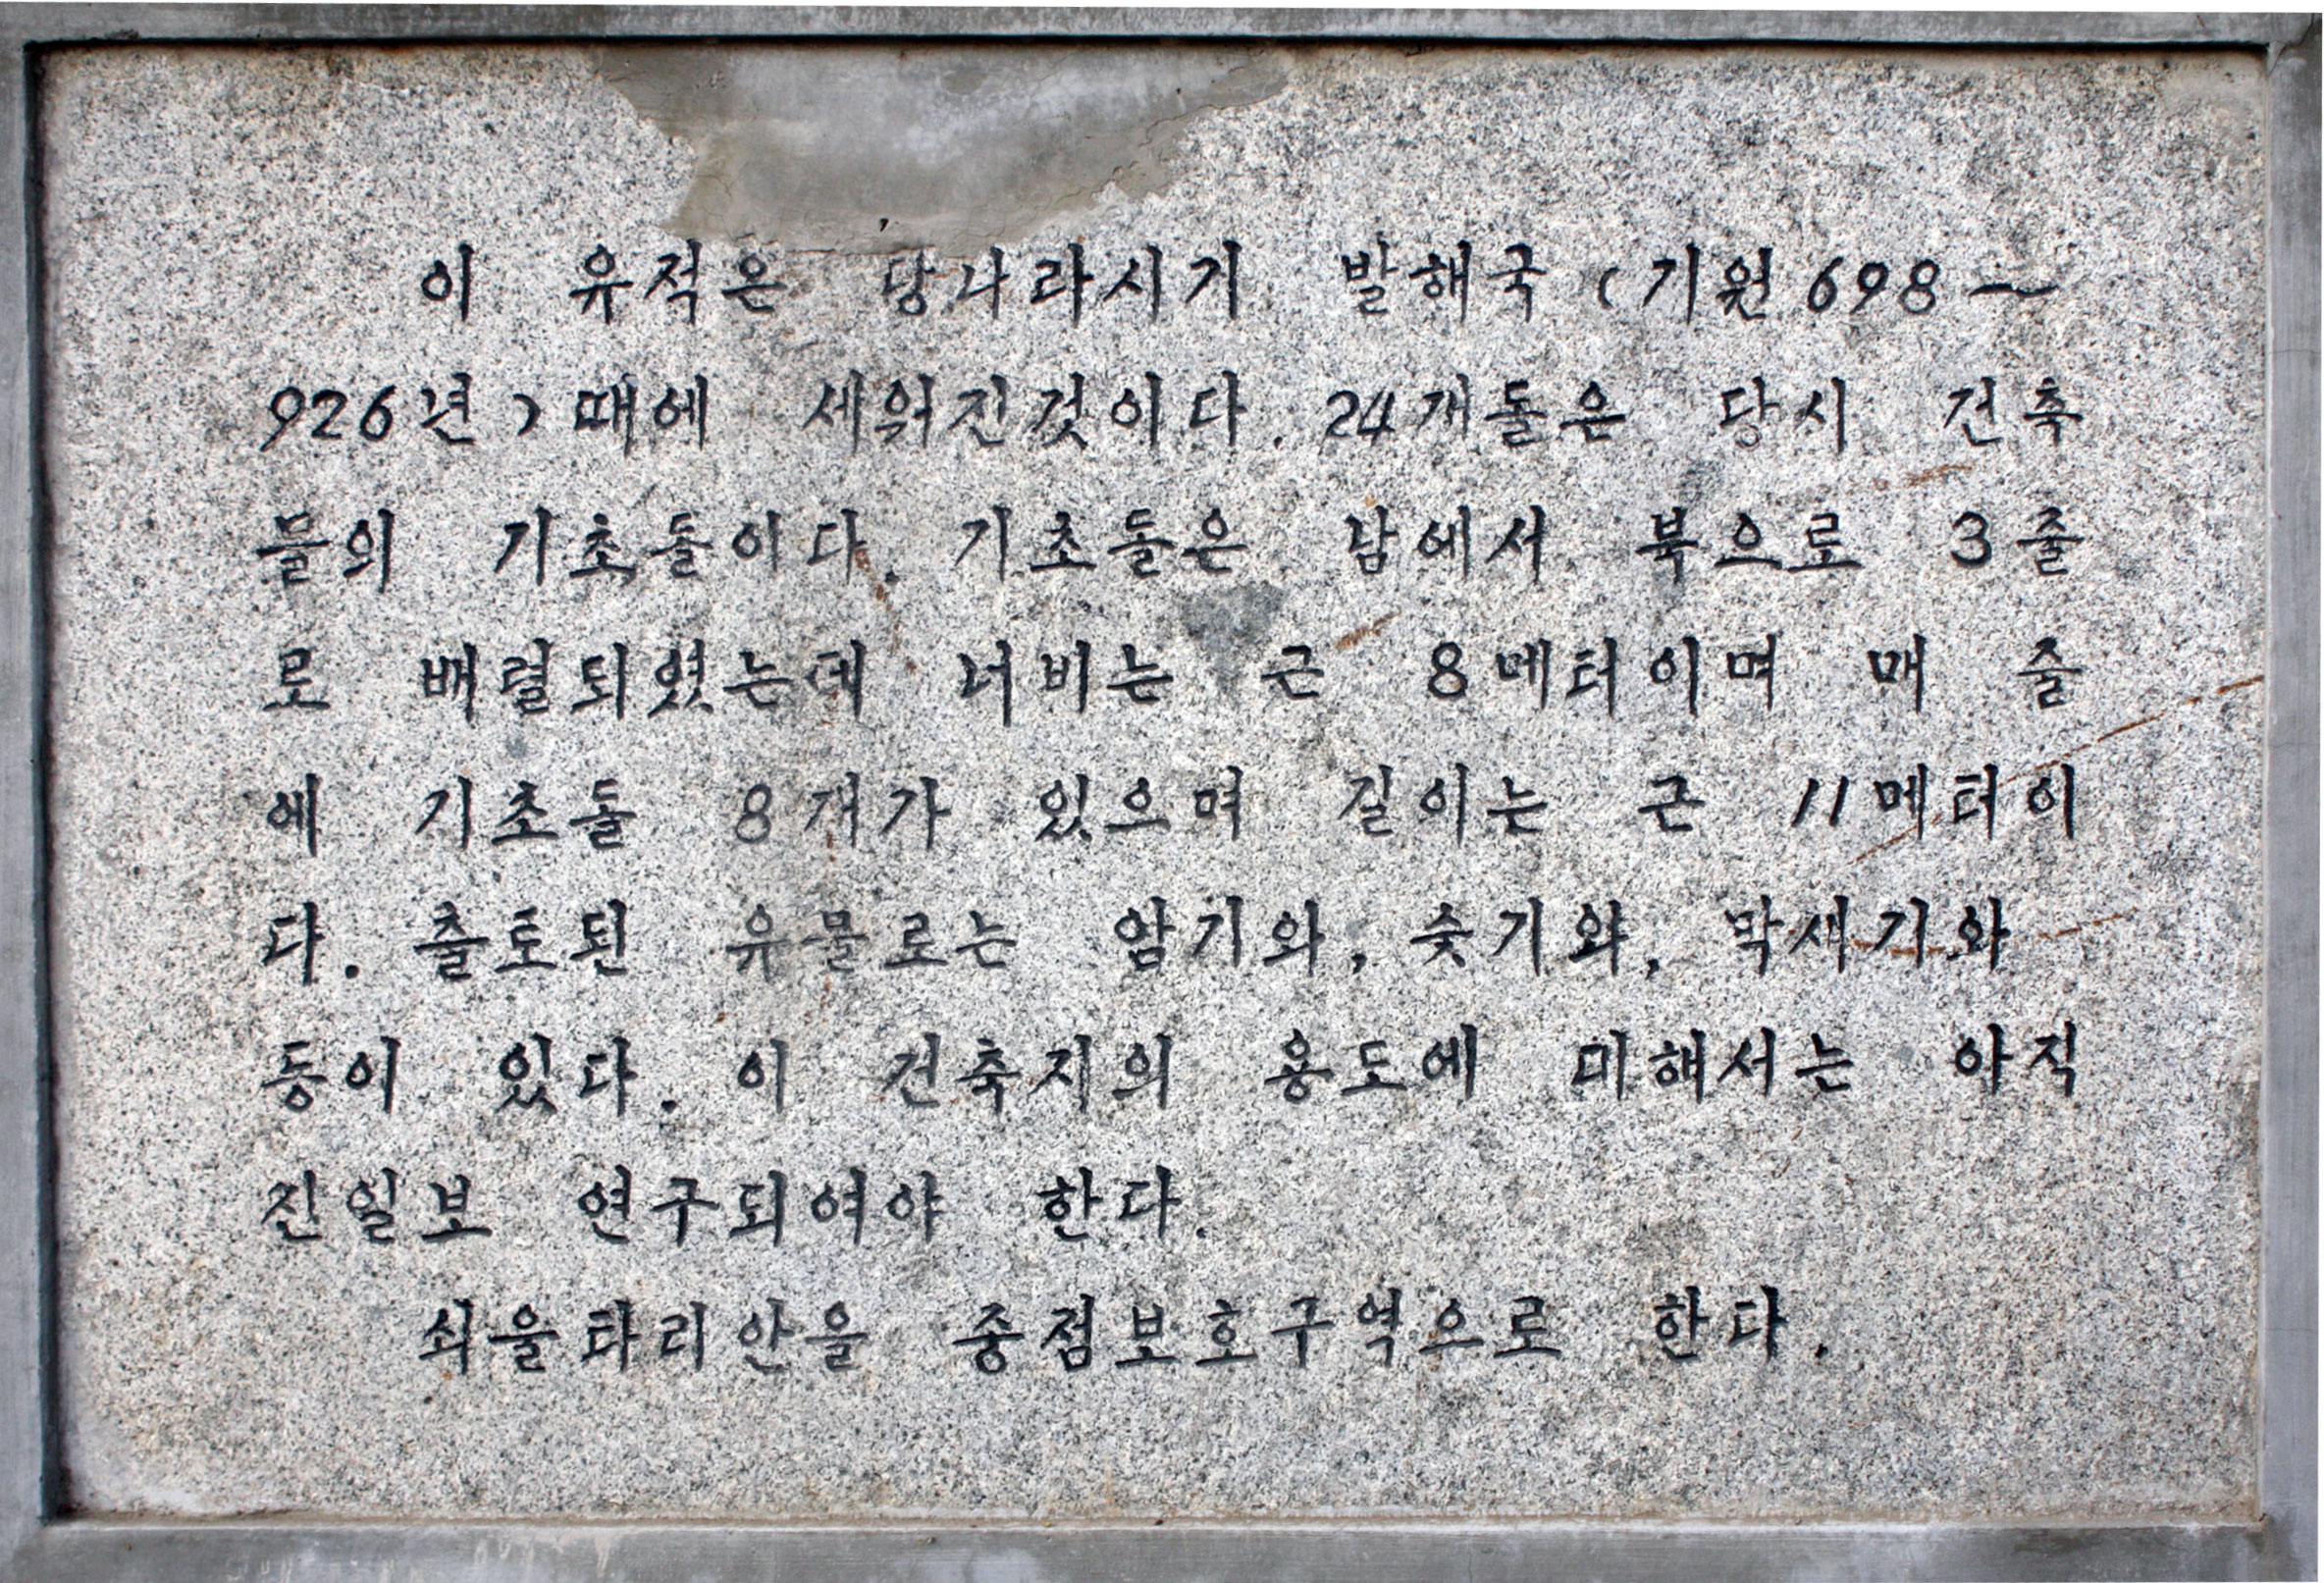 이 유적은 당나라시기 발해국 (기원 698~
926년) 때에 세워진것이다. 24개돌은 당시 건축
물의 기초돌이다. 기초돌은 남에서 북으로 3줄
로 배렬되였는데 너비는 근 8메터이며 매 줄
에 기초돌 8개가 있으며 길이는 근 11메터이
다. 출토된 유물로는 암기와, 숫기와, 막새기와
등이 있다. 이 건축지의 용도에 대해서는 아직
진일보 연구되여야 한다.
쇠울타리안을 중점보호구역으로 한다.